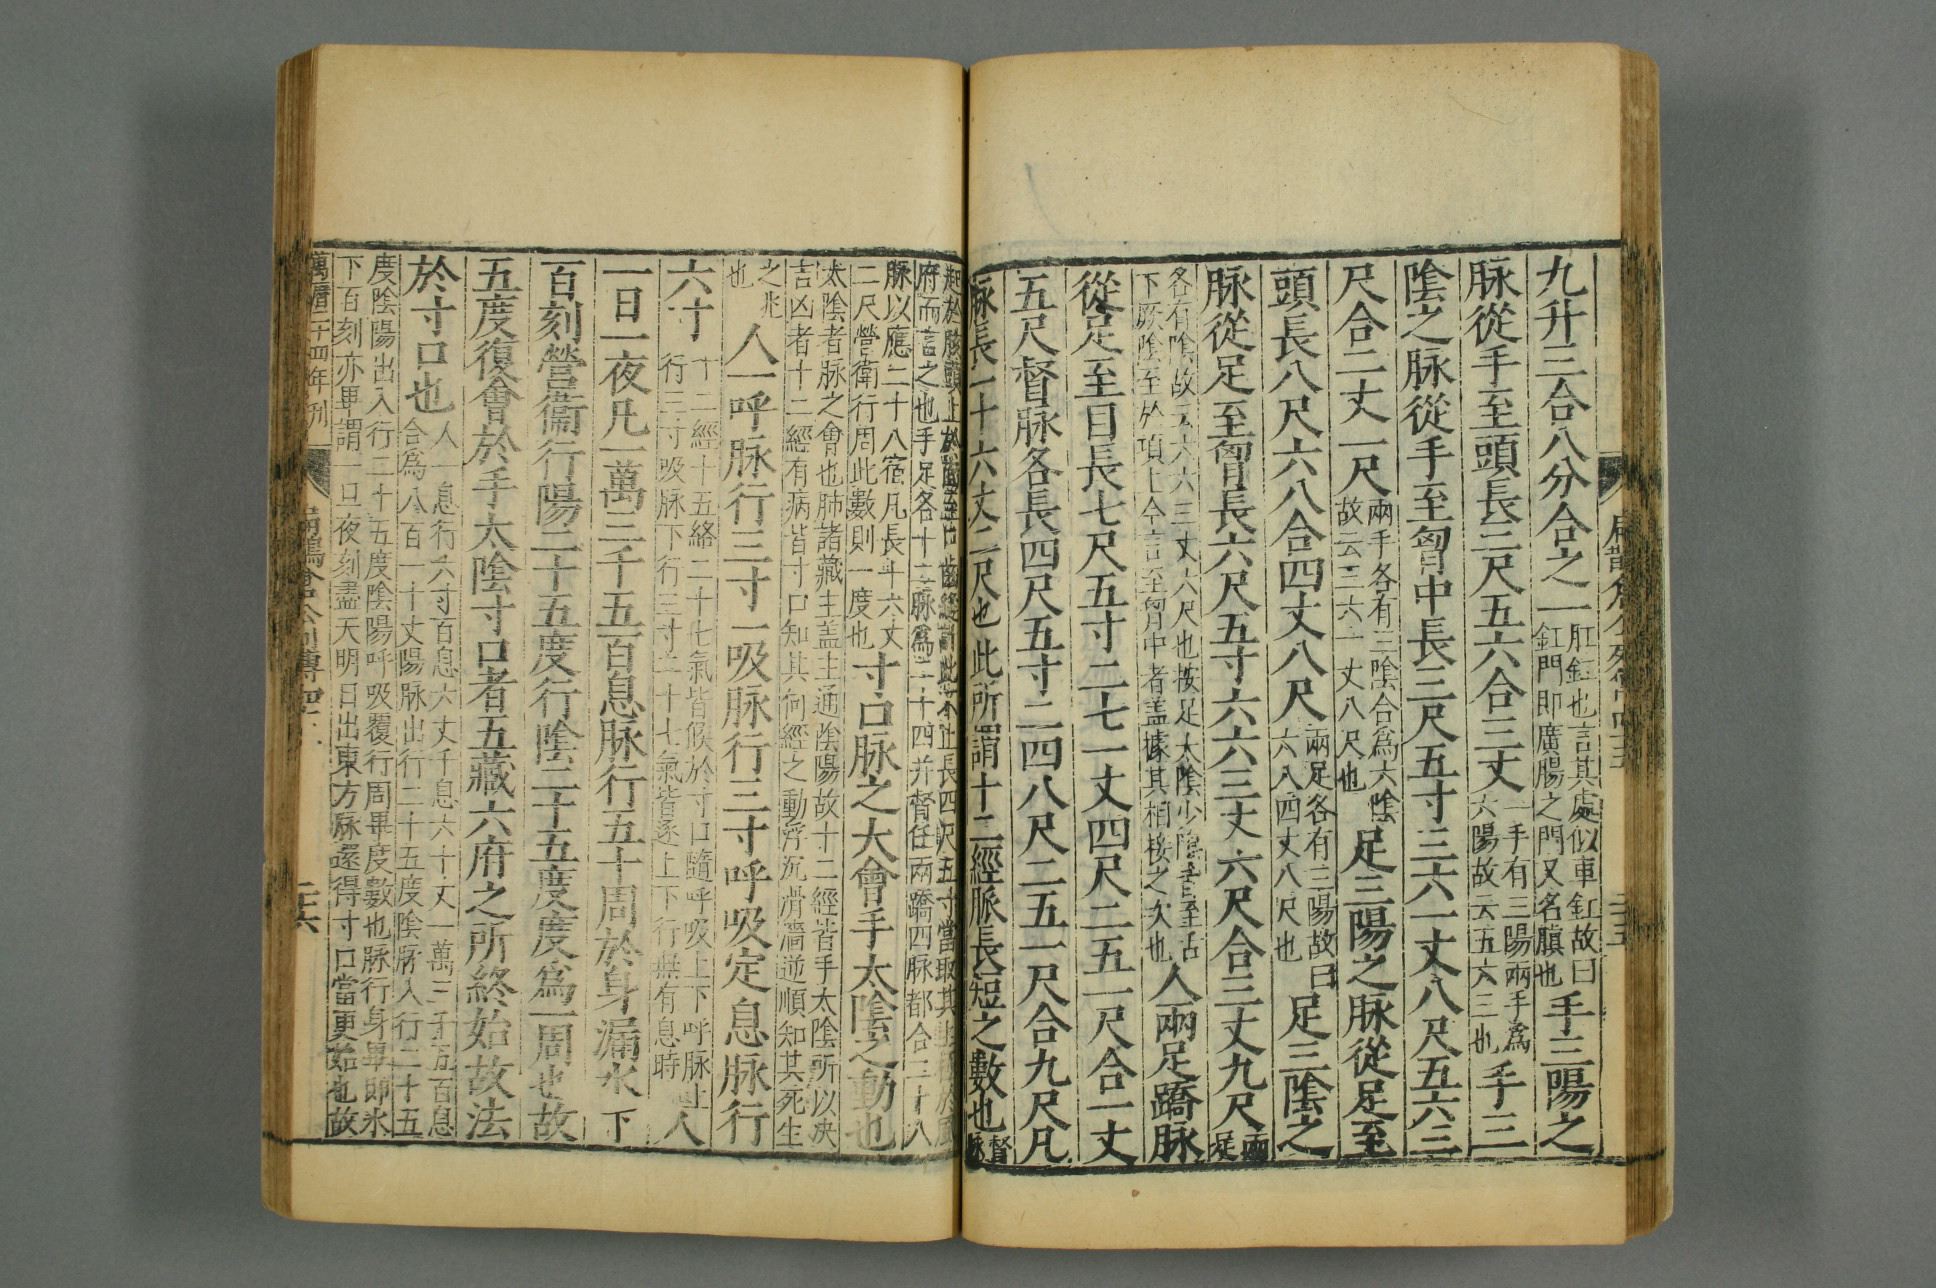 九升三合八分合之一肛釭也言其處似車釭故曰釭門即廣腸之門又名䐜也手三陽之
脉從手至頭長五尺五六合三丈一手有三陽兩手爲六陽故云五六三也手三
陰之脉從手至胷中長三尺五寸三六一丈八尺五六三
尺合二丈一尺兩手各有三陰合爲六陰故云三六一丈八尺也足三陽之脉從足至
頭長八尺六八合四丈八尺兩足各有三陽故曰六八四丈八尺也足三陰之
脉從足至胷長六尺五寸六六三丈六尺合三丈九尺兩足
各有陰故云六六三丈六尺也按足太陰少陰皆至舌下厥陰至於項上今言至胷中者蓋據其相接之次也人兩足蹻脉
從足至目長七尺五寸二七一丈四尺二五一尺合一丈
五尺督脉各長四尺五寸二四八尺二五一尺合九尺凡
脉長一十六丈二尺也此所謂十二經脈長短之數也督脉
起於
府而言之也手足各十二脉爲二十四并督任兩蹻四脉都合二十八
脉以應二十八宿凡長十六丈二尺營衛行周此數則一度也寸口脉之大會手太陰之動也
太陰者脉之會也肺諸藏主蓋主通陰陽故十二經皆手太陰所以决吉凶者十二經有病皆寸口知其何經之動浮沉滑濇逆順知其死生
之兆也人一呼脉行三寸一吸脉行三寸呼吸定息脉行
六寸十二經十五絡二十七氣皆候於寸口隨呼吸上下呼脉上行三寸吸脉下行三寸二十七氣皆逐上下行無有息時人
一日一夜凡一萬三千五百息脉行五十周於身漏水下
百刻營衞行陽二十五度行陰二十五度度爲一周也故
五度復會於手太陰寸口者五藏六府之所終始故法
於寸口也人一息行六寸百息六丈千息六十丈一萬三千五百息合爲八百一十丈陽脉出行二十五度陰脉入行二十五
度陰陽出入行二十五度陰陽呼吸覆行周畢度數也脉行身畢即水下百刻亦畢謂一日一夜刻盡天明日出東方脉還得寸口當更始也故
萬曆二十四年刋
扁鵲倉公列傳四十五
二十六